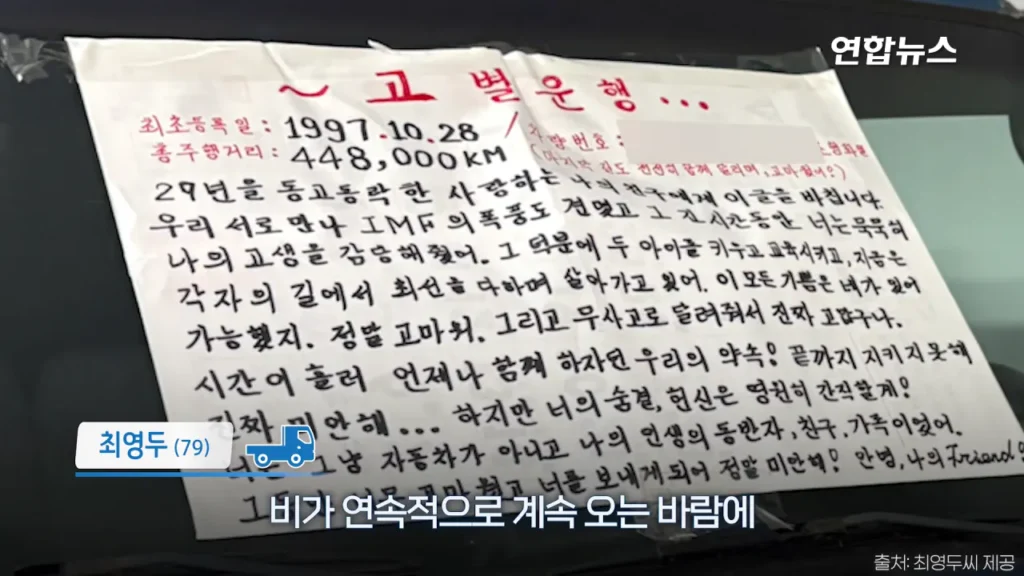 연합뉴스
~ 고 별 운 행 ...
최초등록일 : 1997.10.28 / 차량번호 :
총주행거리 : 448,000KM (마지막 길도 천천히 함께 달리며, 고마웠어?)
29년을 동고동락한 사랑하는 나의 친구에게 이글을 바칩니다
우리 서로만나 IMF의폭풍도 견뎠고 그 긴시간동안 너는묵묵히
나의 고생을 감당해줬어. 그 덕분에 두 아이를 키우고 교육시키고, 지금은
각자의 길에서 최선을 다하며 살아가고 있어. 이 모든 기쁨은 네가 있어
가능했지. 정말 고마워. 그리고 무사고로 달려줘서 진짜 고맙구나.
시간이 흘러 언제나 함께 하자던 우리의 약속! 끝까지 지키지못해
진짜 미안해... 하지만 너의 숨결, 헌신은 영원히 간직할게!
그냥 자동차가 아니고 나의 인생의 동반자, 친구, 가족이었어.
고마웠고 너를 보내게되어 정말 미안해! 안녕, 나의 Friend
최영두 (79)
비가 연속적으로 계속 오는 바람에
출처: 최영두씨 제공